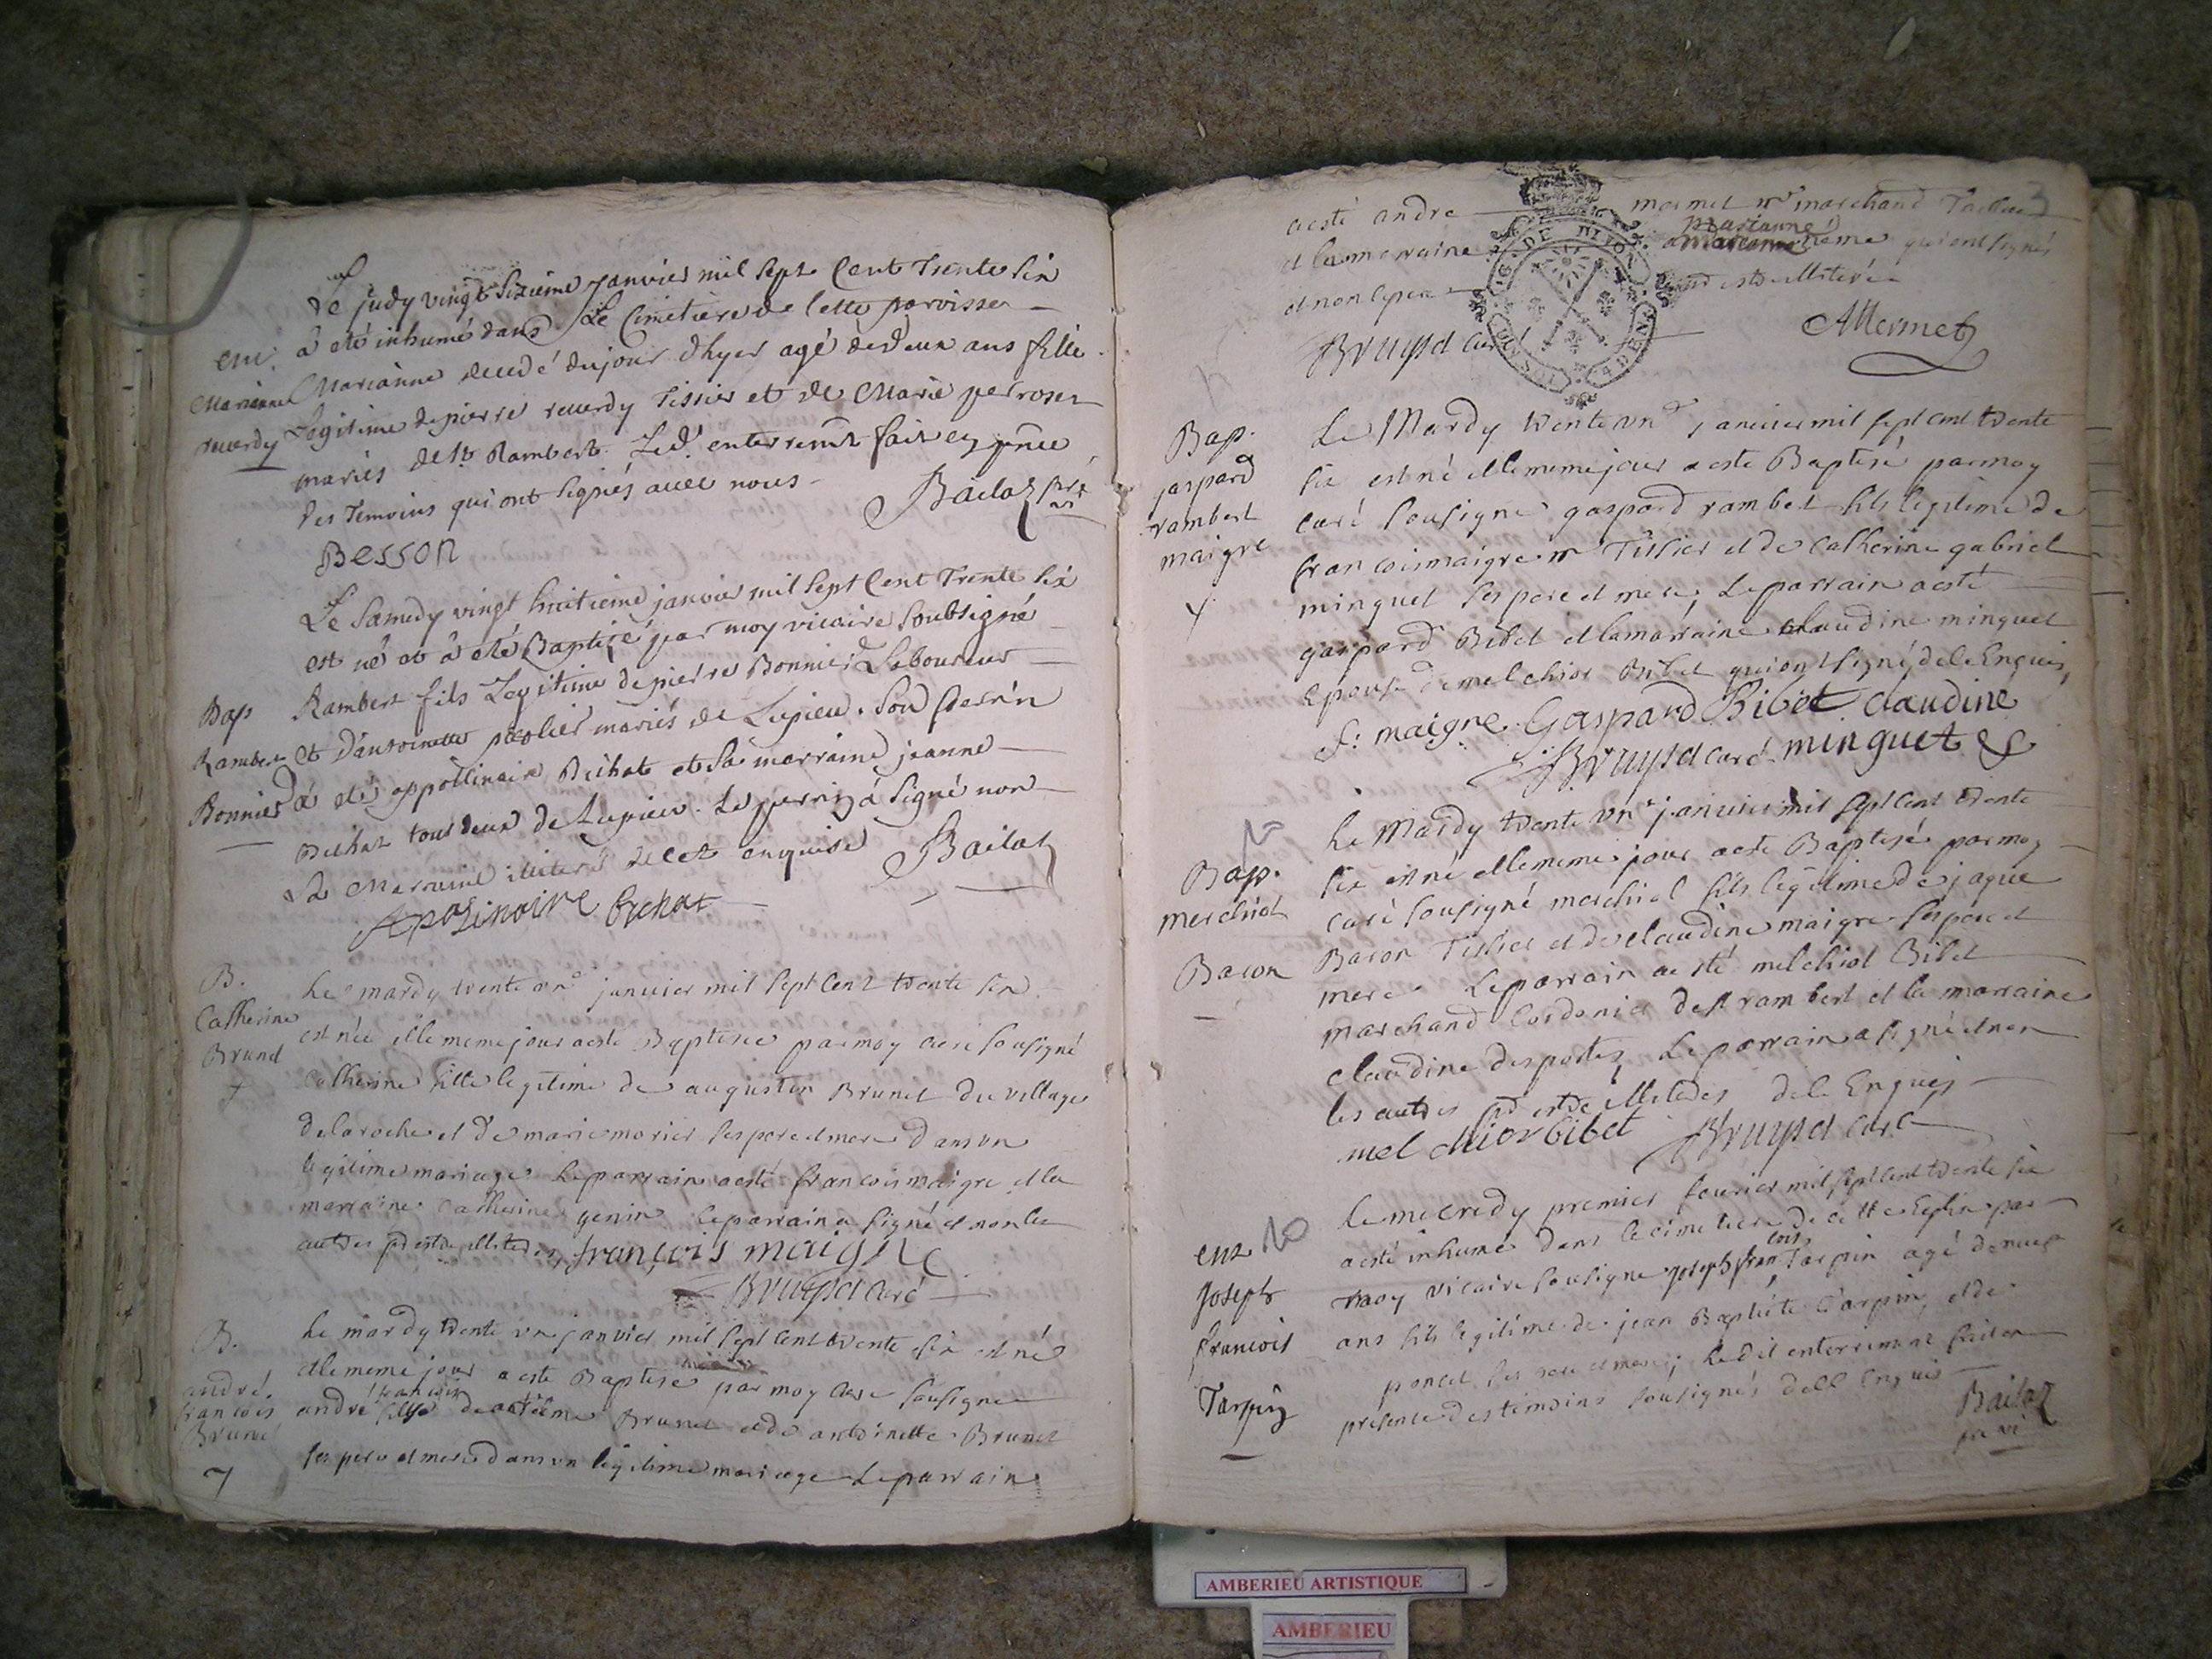 Le judy vingt sixieme janvier mil sept Cent Trente six
à eté inhumé dans Le Cimetiere de Cette parroisse
Marianne decedé du jour d'hyer agé de deux ans fille
Legitime de pierre reverdy Tissier et de Marie perroset
mariés de St Rambert. Led. enterremt fait en pnce
des Temoins qui ont signés avec nous
Bailat
Besson
ent.
Marianne
reverdy
Le Samedy vingt huitieme janvier mil sept Cent Trente six
est né et à eté Baptizé par moy vicaire Soubsigné
Rambert fils Legitime de pierre Bonnierd Laboureur
et d'antoinette mariés de Lupieu. Son
à eté appollinaire Bichat et sa marraine jeanne
Bichat tous deux de Lupieu. Le à signé non
La Marraine de cet enquise
Bailat
Apolinaire Bichat
Bap
Rambert
Bonnierd
B.
Catherine
Brunet
Le mardy trente un janvier mil sept Cent trente six
est née et le meme jour a esté Baptisée par moy curé sousigné
Catherine fille legitime de augustin Brunet du village
de la roche et de marie morier ses pere et mere dans un
legitime mariage Le parrain a esté francois maigre et la
marraine Catherine genin le parrain a signé et non les
autres
françois maigre
Bruyset curé
B.
andré
francois
Brunet
7
Le mardy trente un janvier mil sept Cent trente six est né
et le meme jour a esté Baptisé par moy curé sousigné
andré francois de anteleme Brunet et de antoinette Brunet
ses pere et mere dans un legitime mariage Le parrain
a esté andre mermet mr marchand
et la marraine marianne qui ont signés
et non le pere
Bruyset curé
AMermet
Bap.
gaspard
rambert
maigre
Le Mardy trente un janvier mil sept cent trente
six est né et le meme jour a esté Baptisé par moy
curé sousigné gaspard rambert fils legitime de
francois maigre mr Tissier et de Catherine gabriel
minguet ses pere et mere, Le parrain a esté
gaspard Bibet et la marraine claudine minguet
epouse de melchior Bibet qui ont signé de le Enquis,
f: maigre Gaspard Bibet claudine
Bruyset curé minguet
Bap.
merchiol
Baron
Le Mardy trente un janvier mil sept Cent trente
six est né et le meme jour a esté Baptisé par moy
curé sousigné merchiol fils legitime de jaque
Baron Tissier et de claudine maigre ses pere et
mere Le parrain a esté melchiol Bibet
marchand Cordonier de st rambert et la marraine
claudine desportes, Le parrain a signé et non
les autres de le Enquis
melchior bibet Bruyset curé
ent
Joseph
francois
Tarpin
10
Le mecredy premier fevrier mil sept cent trente six
a esté inhumé dans le cimetiere de cette Eglise par
moy vicaire sousigne joseph francois Tarpin agé de neuf
ans fils legitime de jean Baptiste Tarpin, et de
poncet ses pere et mere; Ledit enterrement fait en
presence des temoins sousignés de le Enquis
Bailat
AMBERIEU ARTISTIQUE
AMBERIEU